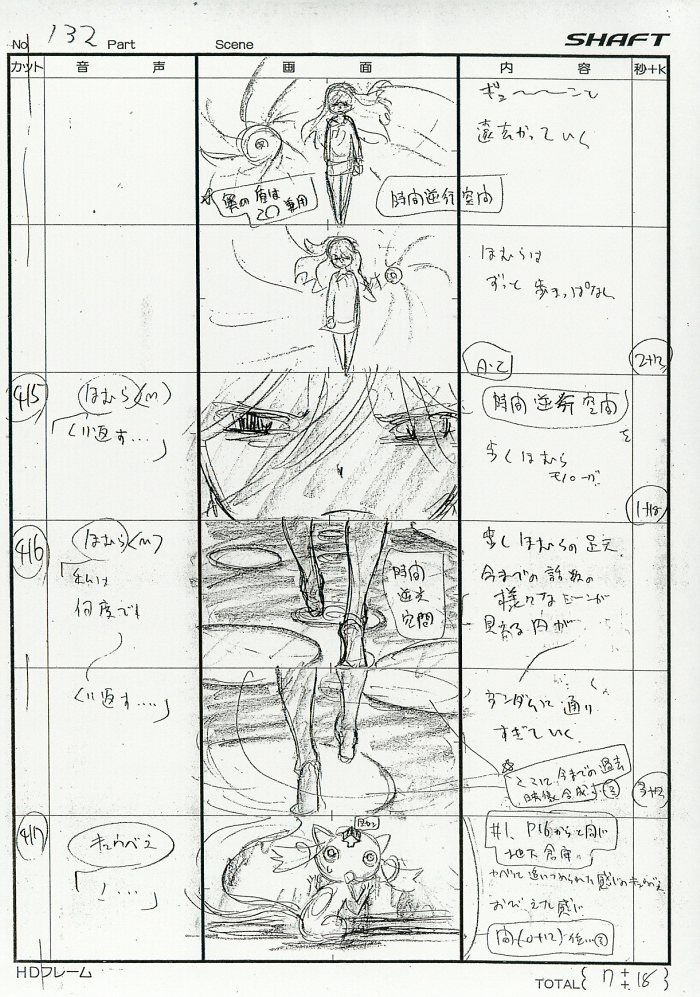 No 132 Part Scene SHAFT
カット 音 声 画 面 内 容 秒+K
遠ざかっていく
時間逆行空間
ほむらは
ずっと 歩きっぱなし
A・C
2+12
415
ほむら(M)
「くり返す…」
時間逆行空間
歩くほむら
モノローグ
1+12
416
ほむら(M)
「私は
何度でも
くり返す…」
時間
空間
歩くほむらの足元
今までの話数の
様々なシーンが
見える円が
ランダムに通り
すぎていく
ここに今までの過去
映像合成す
3+12
417
キュゥべえ
「!…」
#1、P16からと同じ
地下倉庫
おびえた感じ
HDフレーム
TOTAL( 7 + 18 )